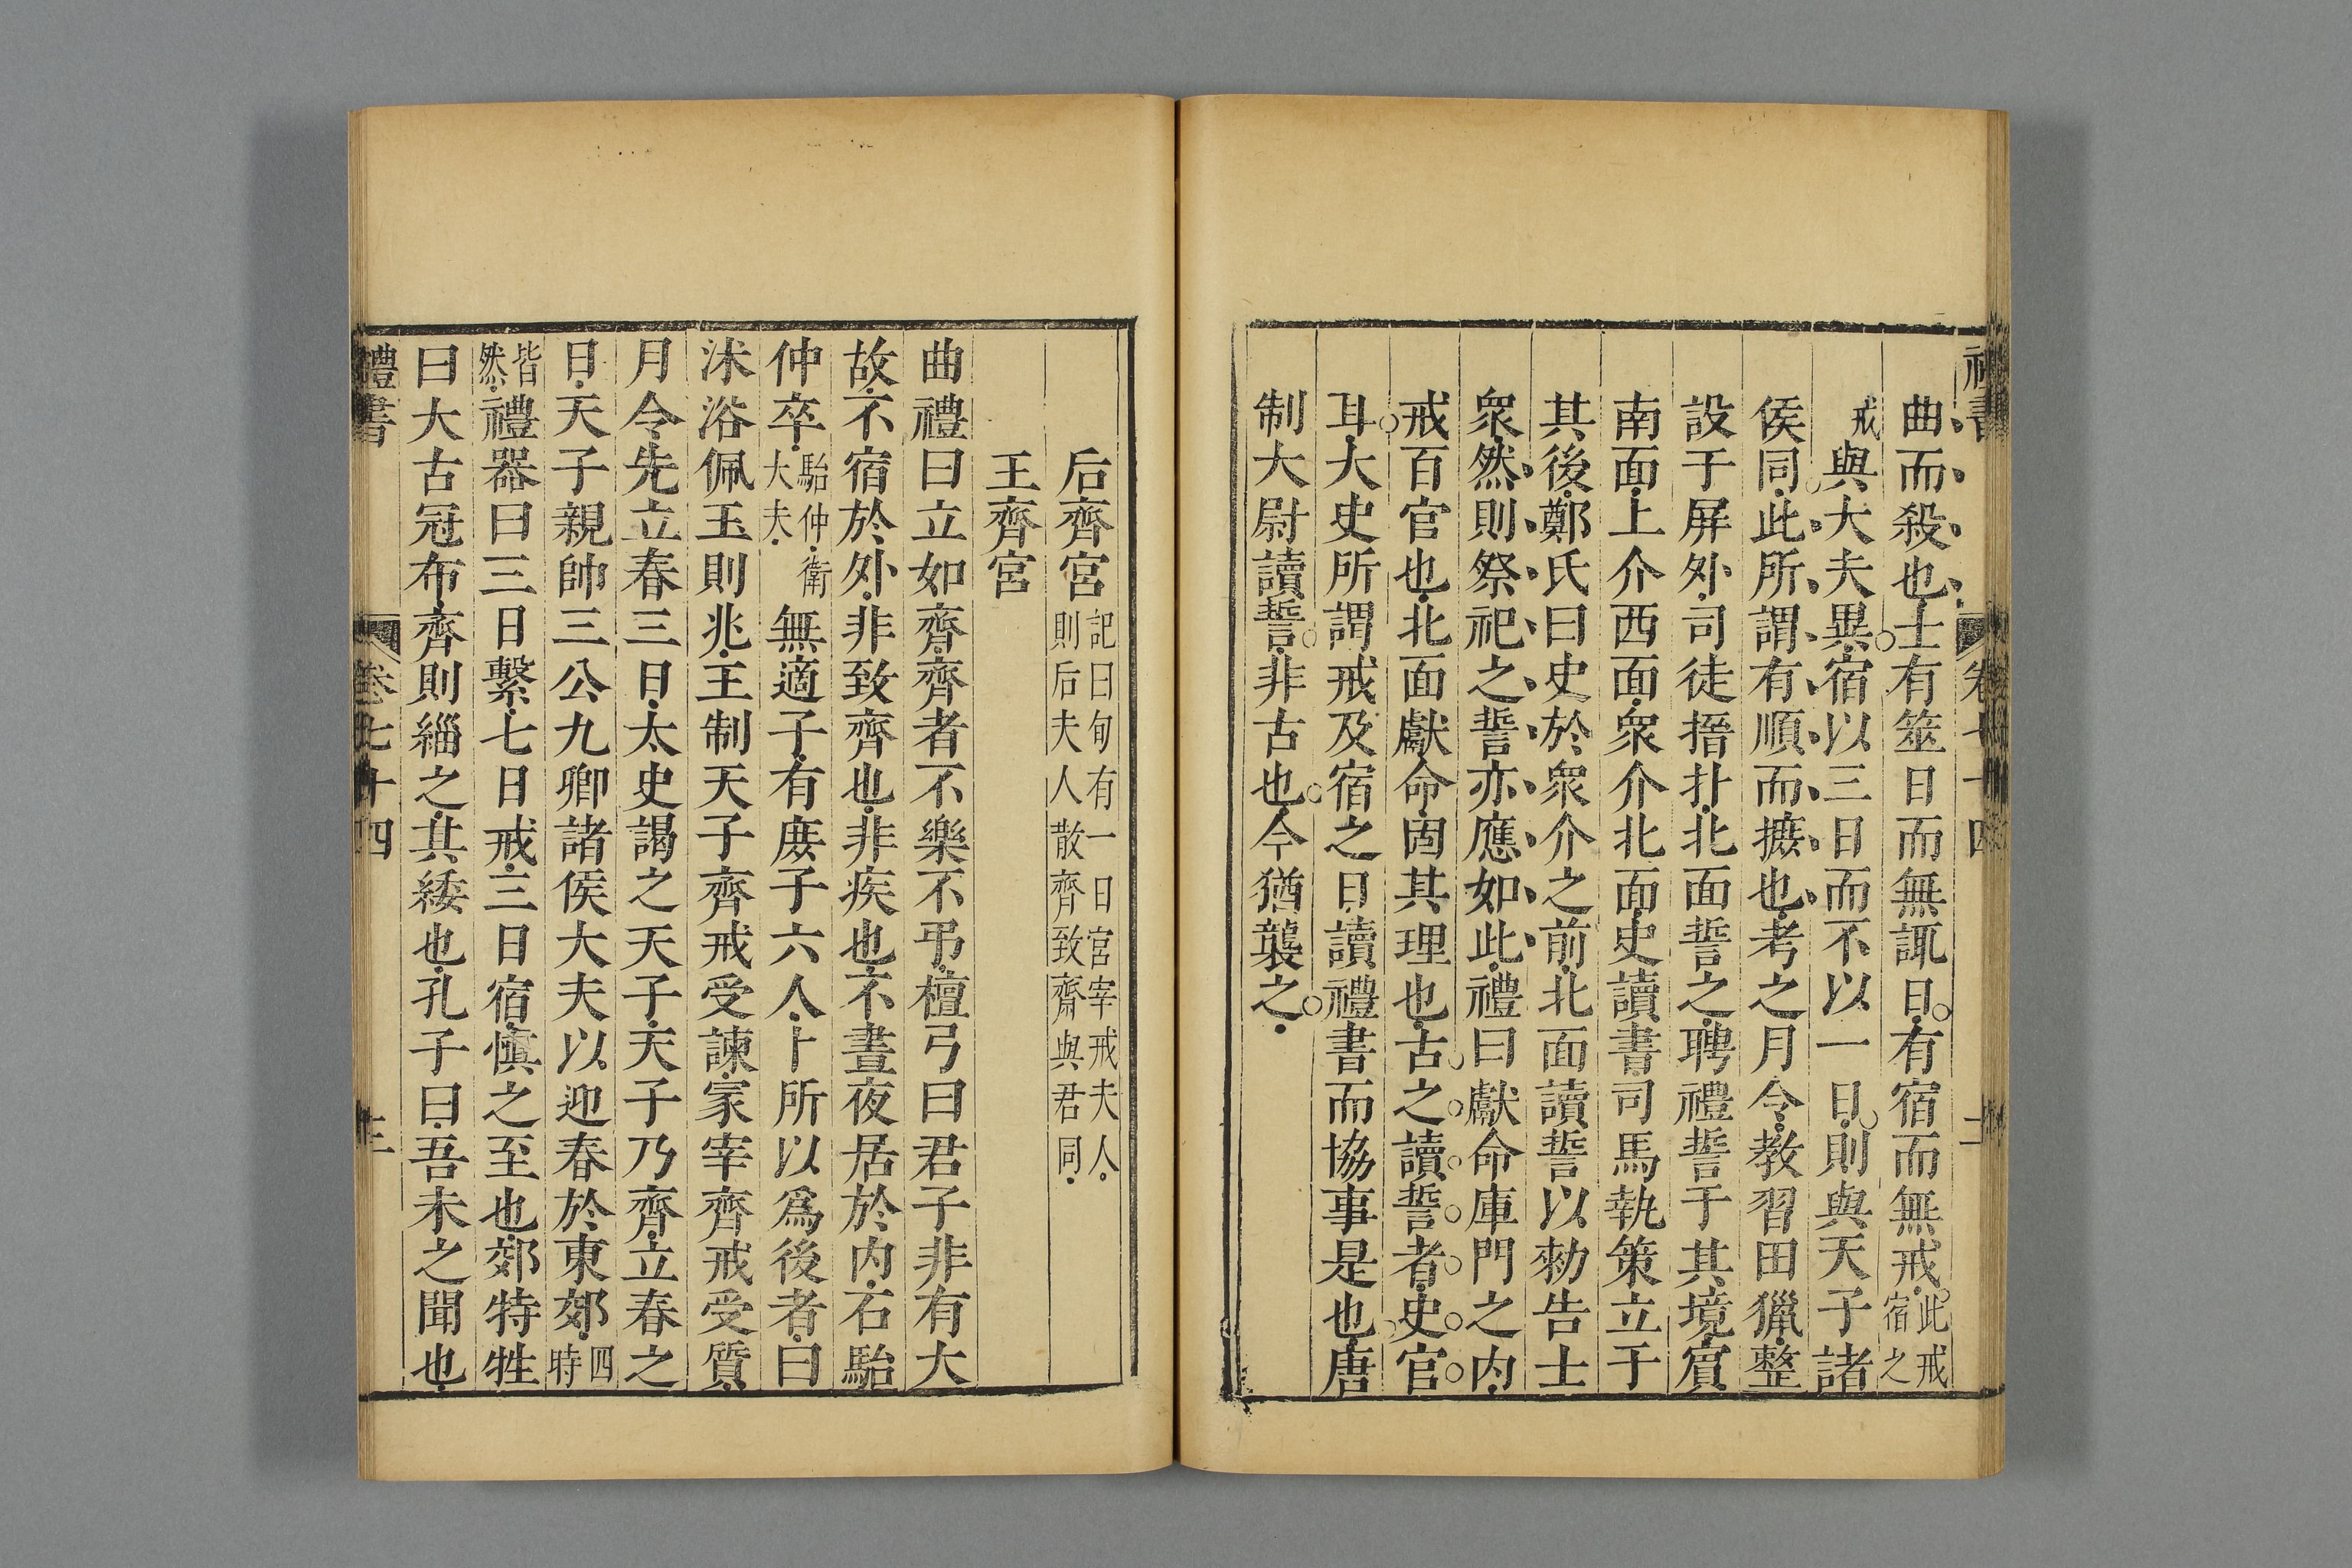 曲而殺也士有筮日而無諏日有宿而無戒此戒宿之
戒與大夫異宿以三日而不以一日則與天子諸
侯同此所謂有順而摭也考之月令教習田獵整
設于屏外司徒搢扑北面誓之聘禮誓于其境賔
南面上介西面衆介北面史讀書司馬執策立于
其後鄭氏曰史於衆介之前北面讀誓以勑告士
衆然則祭祀之誓亦應如此禮曰獻命庫門之內
戒百官也北面獻命固其理也古之讀誓者史官
耳大史所謂戒及宿之日讀禮書而協事是也唐
制大尉讀誓非古也今猶襲之
后齊宮記曰旬有一日宮宰戒夫人則后夫人散齊致齊與君同
王齊宮
曲禮曰立如齊齊者不樂不弔檀弓曰君子非有大
故不宿於外非致齊也非疾也不晝夜居於內石駘
仲卒駘仲衛大夫無適子有庻子六人卜所以爲後者曰
沐浴佩玉則兆王制天子齊戒受諫冢宰齊戒受質
月令先立春三日太史謁之天子天子乃齊立春之
日天子親帥三公九卿諸侯大夫以迎春於東郊四時
皆然禮器曰三日繫七日戒三日宿愼之至也郊特牲
曰大古冠布齊則緇之其緌也孔子曰吾未之聞也
禮書 卷七十四 三